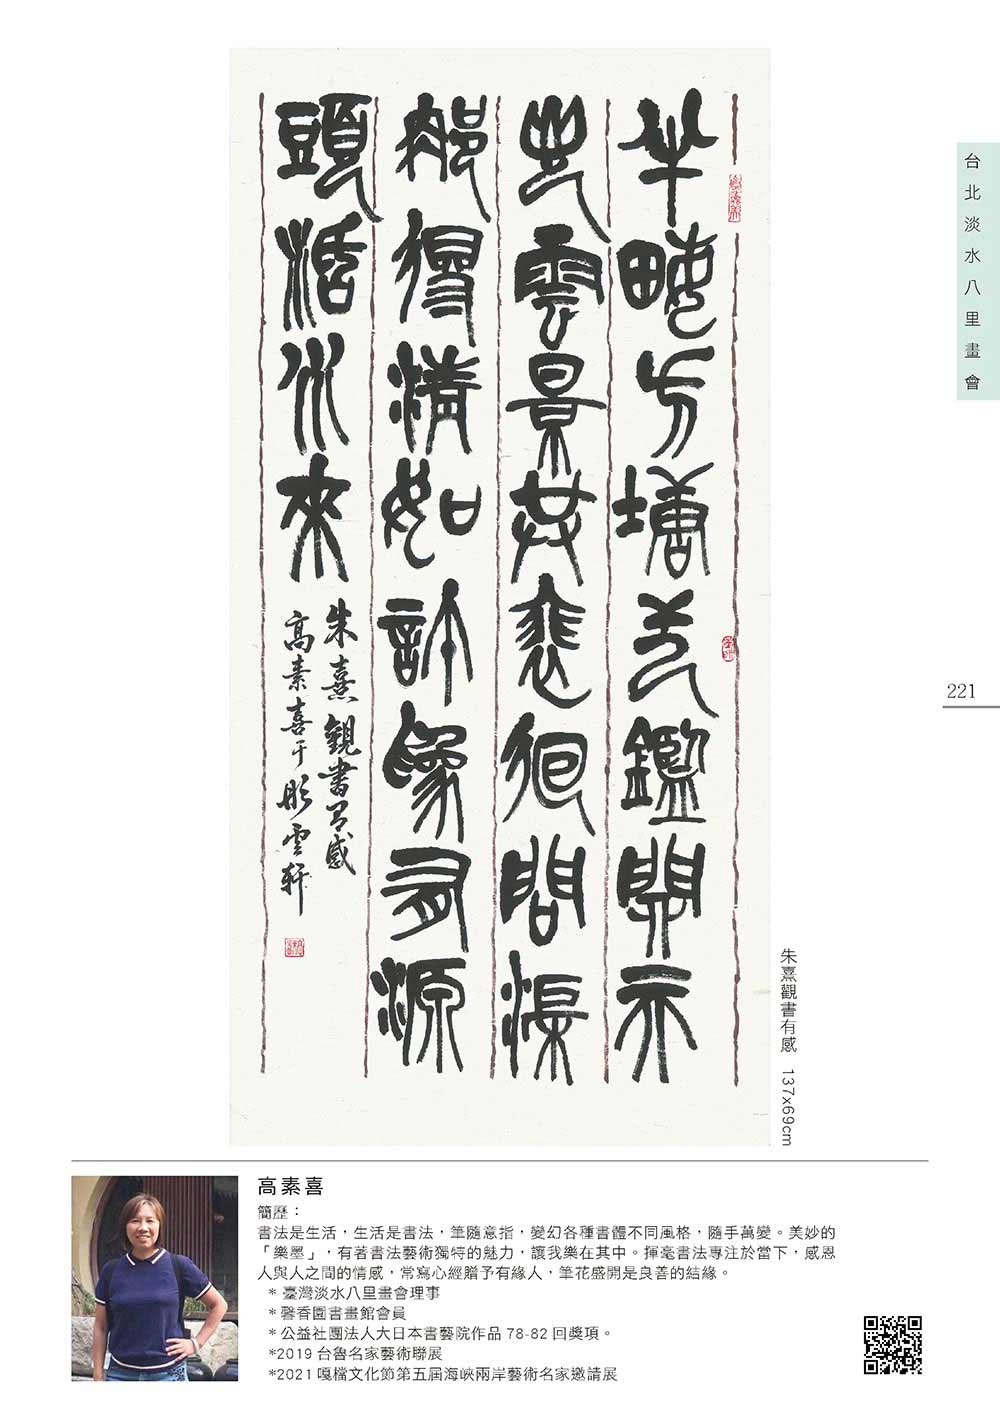 半畝方塘一鑑開天
光雲景共裴徊問渠
那得清如許為有源
頭活水來
朱熹觀書有感
高素喜于彤雲軒
台北淡水八里畫會
221
朱熹觀書有感 137x69cm
高素喜
簡歷：
書法是生活，生活是書法，筆隨意指，變幻各種書體不同風格，隨手萬變。美妙的
「樂墨」，有著書法藝術獨特的魅力，讓我樂在其中。揮毫書法專注於當下，感恩
人與人之間的情感，常寫心經贈予有緣人，筆花盛開是良善的結緣。
* 臺灣淡水八里畫會理事
* 馨香園書畫館會員
* 公益社團法人大日本書藝院作品 78-82 回獎項。
*2019 台魯名家藝術聯展
*2021 嘎檔文化節第五屆海峽兩岸藝術名家邀請展